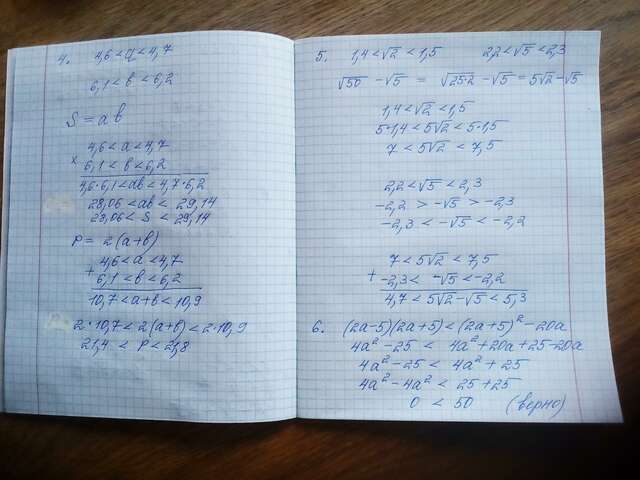 4. 4,6 < a < 4,7
6,1 < b < 6,2
S = ab
4,6 < a < 4,7
× 6,1 < b < 6,2
4,6·6,1 < ab < 4,7·6,2
28,06 < ab < 29,14
28,06 < S < 29,14
P = 2(a+b)
4,6 < a < 4,7
+ 6,1 < b < 6,2
10,7 < a+b < 10,9
2·10,7 < 2(a+b) < 2·10,9
21,4 < P < 21,8
5. 1,4 < √2 < 1,5 2,2 < √5 < 2,3
√50 - √5 = √25·2 - √5 = 5√2 - √5
1,4 < √2 < 1,5
5·1,4 < 5√2 < 5·1,5
7 < 5√2 < 7,5
2,2 < √5 < 2,3
-2,2 > -√5 > -2,3
-2,3 < -√5 < -2,2
7 < 5√2 < 7,5
+ -2,3 < -√5 < -2,2
4,7 < 5√2 - √5 < 5,3
6. (2a-5)(2a+5) < (2a+5)² - 20a
4a² - 25 < 4a² + 20a + 25 - 20a
4a² - 25 < 4a² + 25
4a² - 4a² < 25 + 25
0 < 50 (верно)